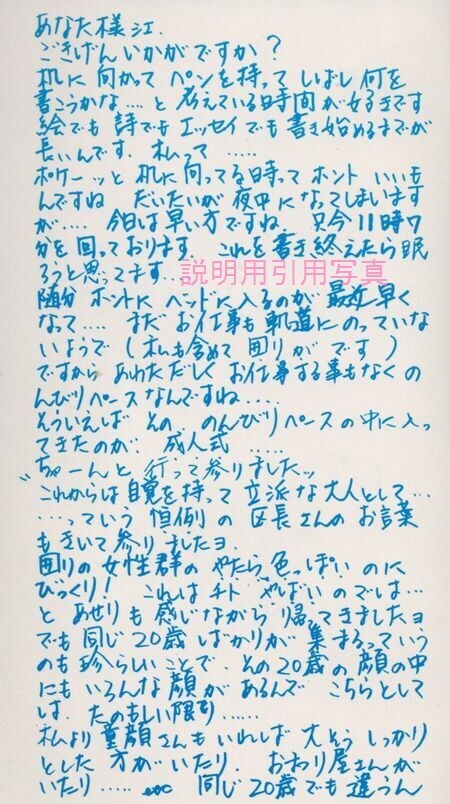 あなた様江.
ごきげんいかがですか?
机に向かって ペンを持って しばし何を
書こうかな....と 考えている時間が好きです
絵でも 詩でも エッセイでも 書き始めるまでが
長いんです. 私って .....
ポケーッと 机に向ってる時って ホント いいも
んですね だいたいが 夜中になってしまいます
が.... 今日は早い方ですね. 只今11時7
分を回っております. これを書き終えたら眠
ろうと思ってます...
説明用引用写真
随分 ホントに ベッドに入るのが 最近早く
なって.... まだ お仕事も 軌道にのっていな
いようで (私も含めて 囲りが です)
ですから あわただしく お仕事する事もなくの
んびりペースなんですね....
そういえば その のんびりペースの中に入っ
てきたのが. 成人式 .....
"ちゃーんと 行って参りましたッ
これからは自覚を持って 立派な大人として...
...っていう 恒例の 区長さんの お言葉
もきいて参りましたヨ
囲りの 女性群の やたら 色っぽいのに
びっくり! これは チト やばいのでは...
と あせりも 感じながら 帰ってきましたヨ
でも同じ20歳ばかりが 集まるっていう
のも 珍らしいことで. その20歳の 顔の中
にも いろんな顔が あるんで こちらとして
は. たのもしい限り......
私より 童顔さんもいれば 大そう しっかり
とした 方がいたり. おわらい屋さんが
いたり..... etc 同じ20歳でも違うん